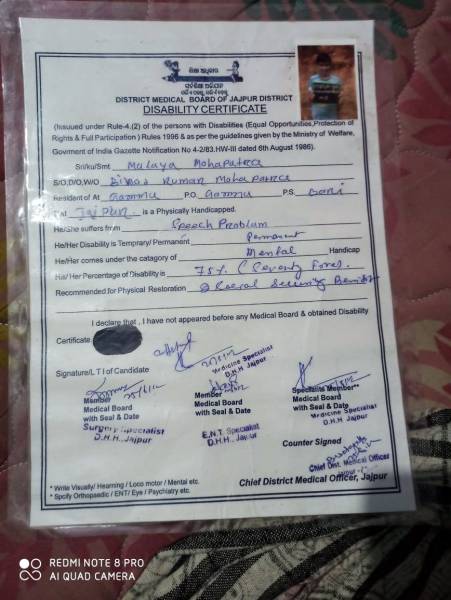 DISTRICT MEDICAL BOARD OF JAJPUR DISTRICT
DISABILITY CERTIFICATE
(Issuued under Rule-4.(2) of the persons with Disabilities (Equal Opportunities, Protection of
Rights & Full Participation) Rules 1996 & as per the guidelines given by the Ministry of Welfare,
Govrment of India Gazette Notification No 4-2/83.HW-III dated 6th August 1986).
Sri/ku/Smt Malaya Mohapatra
S/O,D/O,W/O Kumar Mohapatra
Resident of At P.O P.S. Bari
Jajpur is a Physically Handicapped.
He/She suffers from Speech Problem
He/Her Disability is Temprary/Permanent Permanent
He/Her comes under the catagory of Mental Handicap
His/ Her Percentage of Disability is 75%
Recommended for Physical Restoration Social Security Benifit
I declare that, I have not appeared before any Medical Board & obtained Disability
Certificate
Signature/L T I of Candidate
Medicine Specialist
D.H.H Jajpur
Member
Medical Board
with Seal & Date
Surgery Specialist
D.H.H., Jajpur
Member
Medical Board
with Seal & Date
E.N.T. Specialist
D.H.H., Jajpur
Specialist Member**
Medical Board
with Seal & Date
Medicine Specialist
D.H.H, Jajpur
Counter Signed
Chief Dist. Medical Officer
Chief District Medical Officer, Jajpur
* Write Visually/ Hearning / Loco motor / Mental etc.
* Spcify Orthopaedic / ENT/ Eye / Psychiatry etc.
REDMI NOTE 8 PRO
AI QUAD CAMERA